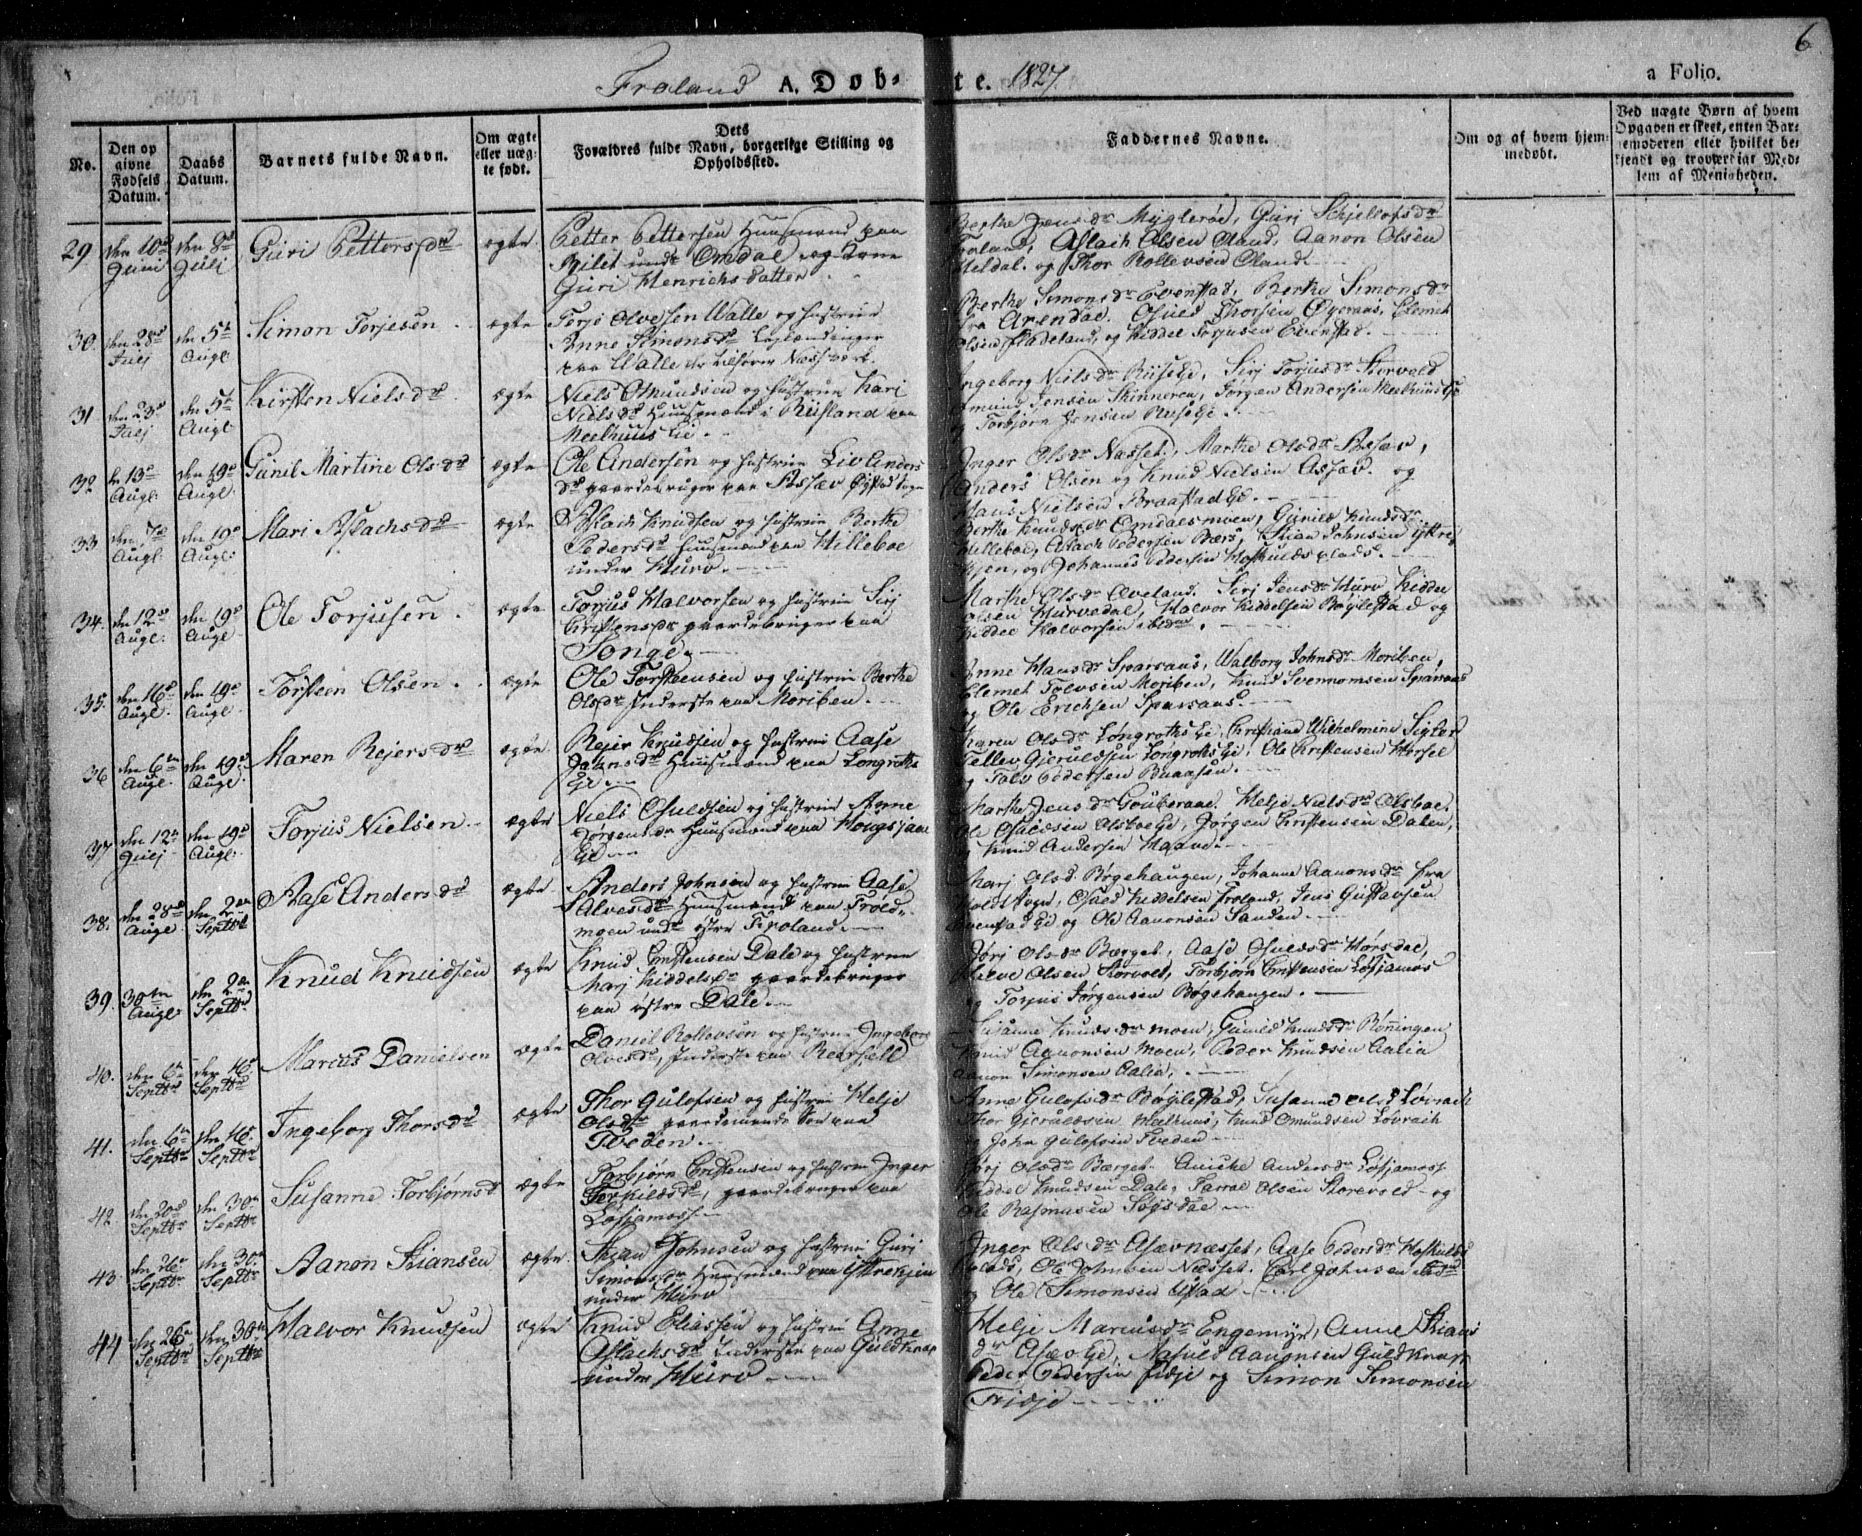 6
Froland A. Dob- te. 1827. a Folio.
No.
Den op
givne
Fødsels
Datum.
Daabs
Datum.
Barnets fulde Navn.
Om ægte
eller uæg-
te født.
Dets
Forældres fulde Navn, borgerlige Stilling og
Opholdssted.
Faddernes Navne.
Om og af hvem hjem-
medøbt.
Ved uægte Børn af hvem
Opgaven er skeet, enten Bar-
nemoderen eller hvilket be-
kjendt og troværdigt Med-
lem af Menigheden.
29 den 10de Juni den 8de Julj Guri Petters dr ægte
Petter Pettersen Huusmand paa
Bilet under Omdal og Kone
Guri Henrichsdatter
Berthe Jens dr Myglerøe, Guri Schjellofs dr
Froland, Aslach Olsen Oland, Aanon Olsen
Heldal og Thor Rollevsen Oland
30. den 28de Julj den 5te Augl: Simon Torjesen ægte
Torje Olvesen Walle og Hustrue
Anne Simons dr
paa Walle Næss værk
Berthe Simons dr Evenstad, Berthe Simons dr
fra Arendal. Osuld Thorsen Øyeraas, Clemet
Olsen Fladeland, og Kiddel Torjusen Evenstad
31 den 23de Julj den 5te Augl: Kirsten Niels dr ægte
Niels Omundsen og Hustrue Kari
Niels dr Huusmand i Riisland paa
Meelhuus Eie
Ingeborg Niels dr Riise Eie, Sirj Torjus dr Storvold
Omund Jensen Skinneren, Jørgen Andersen Meelhuus Eie
og Torbjørn Jensen Riise Eie
32 13de Augl: den 19de Augl: Gunil Martine Ols dr ægte
Ole Andersen og Hustrue Liv Anders
dr gaardebruger paa Assæv Øyestad Sogn
Inger Ols dr Næsset, Marthe Ols dr Assæv,
Anders Olsen og Knud Nielsen Assæv og
Hans Nielsen Braastad Eie
33 den 7de Augl den 19de Augl: Mari Aslachs dr ægte
Aslach Knudsen og Hustrue Berthe
Peders dr Huusmand paa Hilleboe
under Hurv
Berthe Knuds dr Omdalsmoen, Gunild Knuds dr
Hilleboe, Aslach Pedersen Bærs, Stian Johnsen Yttre
kjen, og Johannes Pedersen Hoskulds plads
34. den 12te Augl: den 19de Augl Ole Torjusen ægte
Torjus Halvorsen og Hustrue Sirj
Cristens dr gaardebruger paa
Songe
Marthe Ols dr Aveland. Sirj Jens dr Hurv, Kiddel
Olsen Hurvdal, Halvor Kiddelsen Bøylestad og
Kiddel Halvorsen ibdm
35. den 16de Augl: den 19de Augl: Torsteen Olsen ægte
Ole Torsteensen og Hustrue Berthe
Ols dr Inderste paa Moriben
Anne Hans dr Sparsaas, Walborg Johns dr Moriben,
Clemet Tolvsen Moriben, Knud Svennomsen Sparsaas
og Ole Erichsen Sparsaas
36 den 6te Augl: den 19de Augl: Maren Rejers dr ægte
Rejer Knudsen og Hustrue Aase
Joans dr Huusmand paa Longroths
Eie
Karen Ols dr Longroths Eie, Christiane Wilhelmine Sigler
Tellev Gjeruldsen Longroths Eie, Ole Cristensen Hørsel
og Tolv Pedersen Buaasen
37 den 12te Julj den 19de Augl: Torjus Nielsen ægte
Niels Osuldsen og Hustrue Anne
Jørgens dr Huusmand paa Hougsjaae
Eie
Marthe Jens dr Gouberaae. Helje Niels dr Olsboe.
Ole Osuldsen Olsboe Eie, Jørgen Cristensen Dalen,
og Knud Andersen
38. den 28de Augl den 2den Septbr Aase Anders dr ægte
Anders Johnsen og Hustrue Aase
Alves dr Huusmand paa Trold-
moen under østre Froland
Marj Ols d. Bøgehaugen, Johanne Aanons dr fra
Holdt Sogn, Osuld Kiddelsen Froland, Jens Gustavsen
Evenstad Eie og Ole Aanonsen Sanden
39. 30te Augl: den 2den Septbr Knud Knudsen ægte
Knud Cristensen Dale og Hustrue
Marj Kiddels dr gaardebruger
paa østre Dale
Jørj Ols dr Bærget, Aase Osulds dr Hørsdal,
Olsen Storvold, Torbjørn Cristensen Løsjamos
og Torjus Jørgensen Bøgehaugen
40. den 6te Septbr den 16de Septbr Marcus Danielsen ægte
Daniel Rollevsen og Hustrue Ingeborg
Olves dr, Inderste paa Rearsfell
Susanne Knuds dr Moen, Gunild Knuds dr Rønningen
Knud Aanonsen Moen, Peder Knudsen Aalia
Aanon Simonsen Aalia
41. den 6te Septbr den 16de Septbr Ingeborg Thors dr ægte
Thor Gulofsen og Hustrue Helje
Ols dr gaardemands Søn paa
Tveden
Anne Gulofs dr Bøylestad, Susanne Ols d. Løvrach
Thor Gjeruldsen Meelhuus, Knud Omundsen Løvrach
og John Gulofsen Tveden
42. den 20de Septbr den 30te Septbr Susanne Torbjørns d ægte
Torbjørn Cristensen og Hustrue Inger
Torkilds dr, gaardebruger paa
Løsjamos
Jørj Ols dr Bærget. Aniche Anders dr Løsjamos
Kiddel Knudsen Dale, Olsen Storevold og
Ole Rasmusen Søgsdal
43 den 26de Septbr den 30te Septbr Aanon Stiansen ægte
Stian Johnsen og Hustrue Guri
Simons dr Huusmand paa Yttrekjen
under Hurv
Inger Ols dr Assævnæsset, Aase Peders dr Hoskulds
plads, Ole Johnsen Næsset. Carl Johnsen ibdm
og Ole Simonsen Ustad
44 den 26de Septbr den 30te Septbr Halvor Knudsen ægte
Knud Eliassen og Hustrue Anne
Aslachs dr Inderste paa Guldknap
under Hurv
Helje Marcus dr Engemyr, Anne Stians
dr Assæv Eie, Aanonsen Guldknap
Peder Pedersen Fidje og Simon Simonsen
Fridje